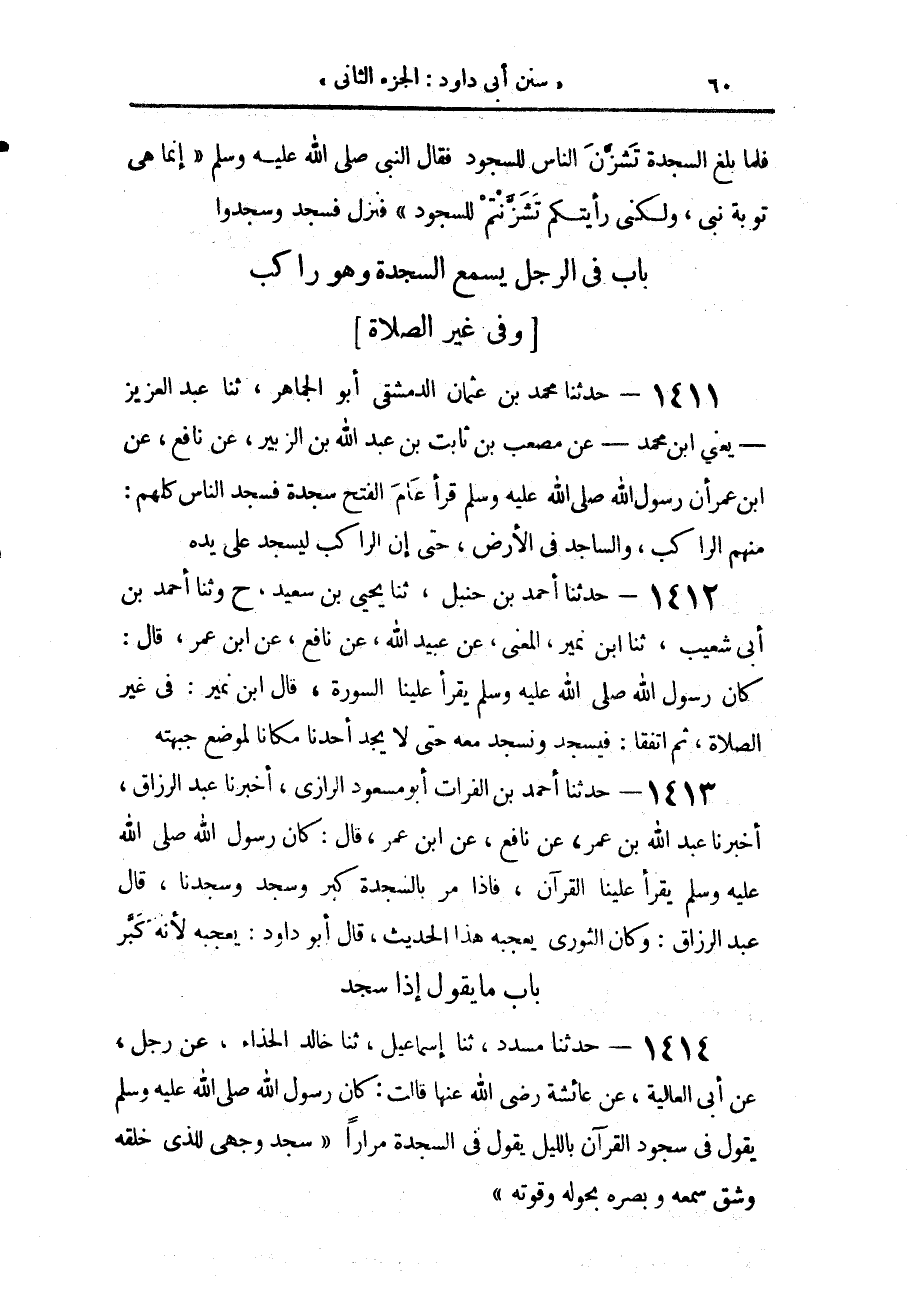 ٦٠ « سنن أبى داود : الجزء الثانى »
فلما بلغ السجدة تَشَزَّنَ الناس للسجود فقال النبى صلى الله عليه وسلم « إنما هى
توبة نبى ، ولكنى رأيتكم تَشَزَّنْتُمْ للسجود » فنزل فسجد وسجدوا
باب فى الرجل يسمع السجدة وهو راكب
[ وفى غير الصلاة ]
١٤١١ — حدثنا محمد بن عثمان الدمشقى أبو الجماهر ، ثنا عبد العزيز
— يعني ابن محمد — عن مصعب بن ثابت بن عبد الله بن الزبير ، عن نافع ، عن
ابن عمر أن رسول الله صلى الله عليه وسلم قرأ عَامَ الفتح سجدة فسجد الناس كلهم :
منهم الراكب ، والساجد فى الأرض ، حتى إن الراكب ليسجد على يده
١٤١٢ — حدثنا أحمد بن حنبل ، ثنا يحيي بن سعيد ، ح وثنا أحمد بن
أبى شعيب ، ثنا ابن نمير ، المعنى ، عن عبيد الله ، عن نافع ، عن ابن عمر ، قال :
كان رسول الله صلى الله عليه وسلم يقرأ علينا السورة ، قال ابن نمير : فى غير
الصلاة ، ثم اتفقا : فيسجد ونسجد معه حتى لا يجد أحدنا مكانا لموضع جبهته
١٤١٣ — حدثنا أحمد بن الفرات أبو مسعود الرازى ، أخبرنا عبد الرزاق ،
أخبرنا عبد الله بن عمر ، عن نافع ، عن ابن عمر ، قال : كان رسول الله صلى الله
عليه وسلم يقرأ علينا القرآن ، فاذا مر بالسجدة كبر وسجد وسجدنا ، قال
عبد الرزاق : وكان الثورى يعجبه هذا الحديث ، قال أبو داود : يعجبه لأنه كَبَّر
باب ما يقول إذا سجد
١٤١٤ — حدثنا مسدد ، ثنا إسماعيل ، ثنا خالد الحذاء ، عن رجل ،
عن أبى العالية ، عن عائشة رضى الله عنها قالت : كان رسول الله صلى الله عليه وسلم
يقول فى سجود القرآن بالليل يقول فى السجدة مراراً « سجد وجهى للذى خلقه
وشق سمعه وبصره بحوله وقوته »